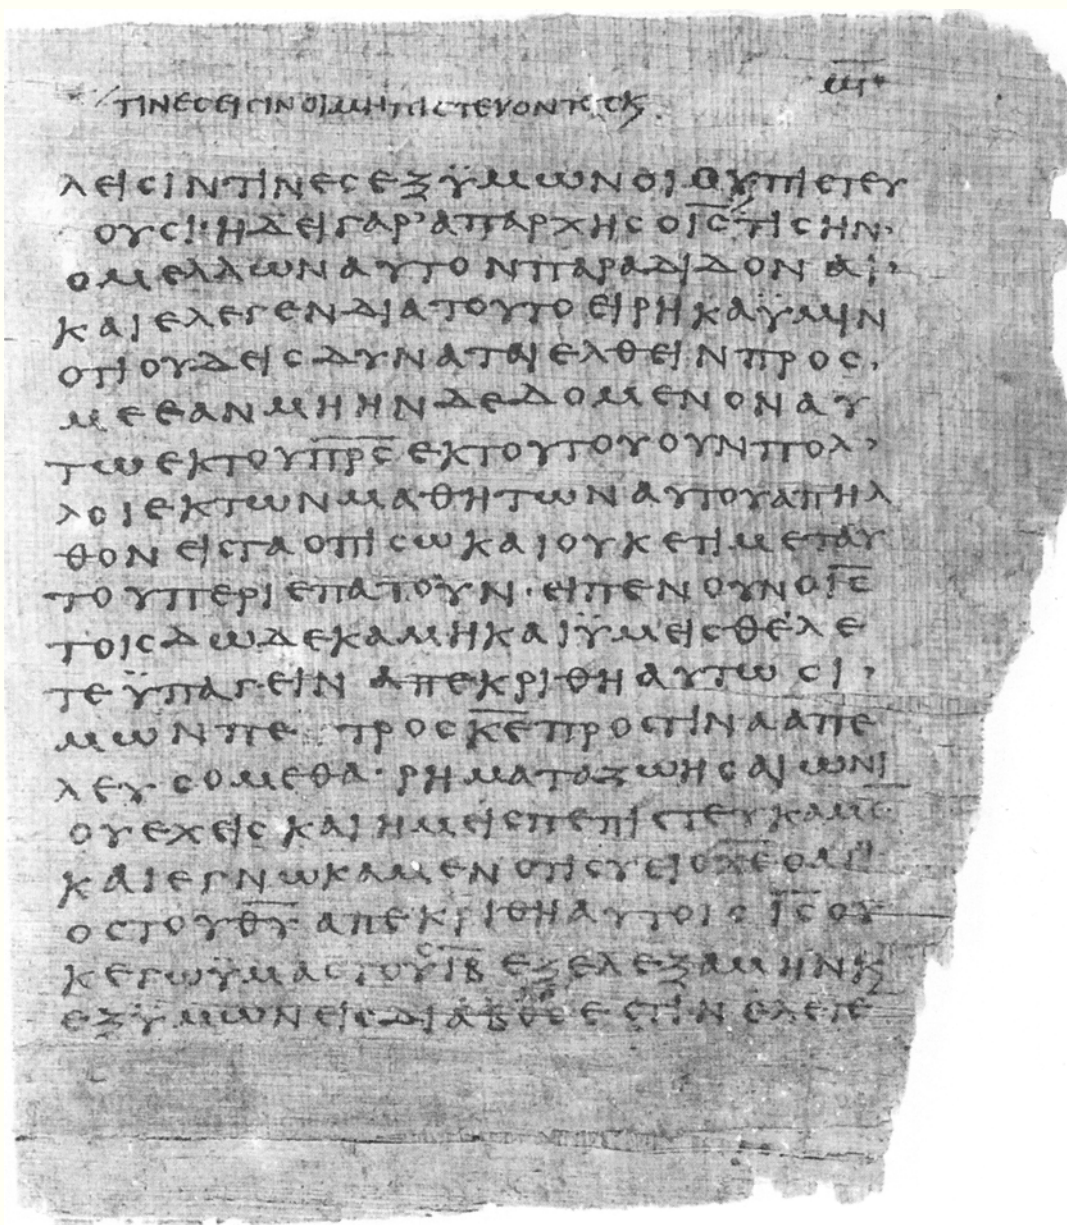 μ̅γ̅
ΤΙΝΕϹΕΙϹΙΝΟΙΜΗΠΙϹΤΕΥΟΝΤΕϹϗ
ΛΕΙϹΙΝΤΙΝΕϹΕΞΫΜΩΝΟΙΟΥΠΙϹΤΕΥ
ΟΥϹΙ·ΗΔΕΙΓΑΡ’ΑΠΑΡΧΗϹΟΙ̅Ϲ̅ΤΙϹΗΝ·
ΟΜΕΛΛΩΝΑΥΤΟΝΠΑΡΑΔΙΔΟΝΑΙ·
ΚΑΙΕΛΕΓΕΝΔΙΑΤΟΥΤΟΕΙΡΗΚΑΫΜΙΝ
ΟΤΙΟΥΔΕΙϹΔΥΝΑΤΑΙΕΛΘΕΙΝΠΡΟϹ·
ΜΕΕΑΝΜΗΗΝΔΕΔΟΜΕΝΟΝΑΥ
ΤΩΕΚΤΟΥΠ̅Ρ̅Ϲ̅ΕΚΤΟΥΤΟΥΟΥΝΠΟΛ’
ΛΟΙΕΚΤΩΝΜΑΘΗΤΩΝΑΥΤΟΥΑΠΗΛ
ΘΟΝΕΙϹΤΑΟΠΙϹΩΚΑΙΟΥΚΕΤΙΜΕΤΑΥ
ΤΟΥΠΕΡΙΕΠΑΤΟΥΝ·ΕΙΠΕΝΟΥΝΟΙ̅Ϲ̅
ΤΟΙϹΔΩΔΕΚΑΜΗΚΑΙΫΜΕΙϹΘΕΛΕ
ΤΕΫΠΑΓΕΙΝΑΠΕΚΡΙΘΗΑΥΤΩϹΙ’
ΜΩΝΠΕΤΡΟϹΚ̅Ε̅ΠΡΟϹΤΙΝΑΑΠΕ
ΛΕΥϹΟΜΕΘΑ·ΡΗΜΑΤΑΖΩΗϹΑΙΩΝΙ
ΟΥΕΧΕΙϹΚΑΙΗΜΕΙϹΠΕΠΙϹΤΕΥΚΑΜΕ
ΚΑΙΕΓΝΩΚΑΜΕΝΟΤΙϹΥΕΙΟΧ̅Ϲ̅ΟΑΓΙ
ΟϹΤΟΥΘ̅Υ̅ΑΠΕΚΡΙΘΗΑΥΤΟΙϹΙ̅Ϲ̅ΟΥ
ΚΕΓΩΫΜΑϹΤΟΥϹΙ̅Β̅ΕΞΕΛΕΞΑΜΗΝϗ
ΕΞΫΜΩΝΕΙϹΔΙΑΒΟΛΟϹΕϹΤΙΝΕΛΕΓΕ